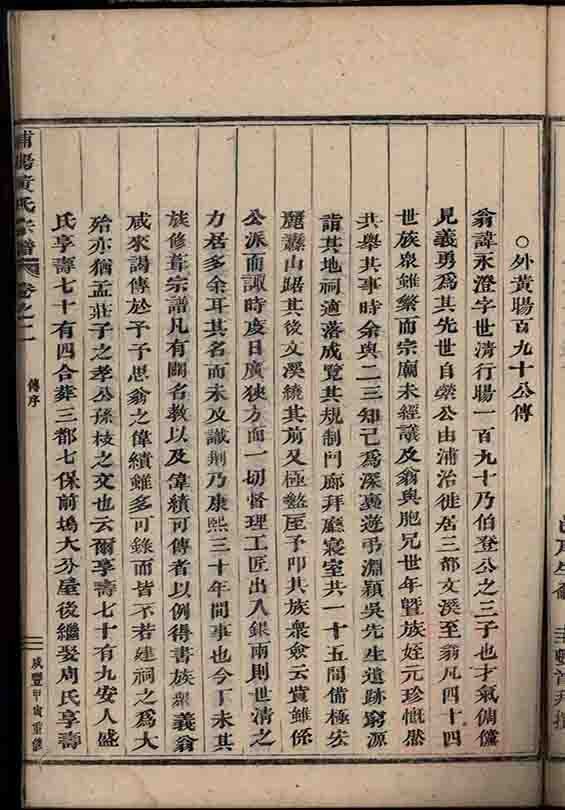 ○外黄暘百九十公傳
翁諱永澄字世清行暘一百九十乃伯登公之三子也才氣倜儻
見義勇爲其先世自榮公由浦治徙居三都文溪至翁凡四十四
世族衆雖繁而宗廟未經議及翁與胞兄世年暨族姪元珍慨然
共舉其事時余與二三知己爲深裊遊弔淵頴吳先生遺跡窮源
詣其地祠適落成覽其規制門廊拜廳寢室共一十五間備極宏
麗山踞其後文溪繞其前又極盤厔予叩其族衆僉云貲雖係
公派而諏時度日廣狹方面一切督理工匠出入銀兩則世清之
力居多余耳其名而未及識荆乃康熙三十年間事也今丁未其
族修葺宗譜凡有關名教以及偉績可傳者以例得書族衆義翁
咸來謁傳於予予思翁之偉績雖多可錄而皆不若建祠之爲大
殆亦猶孟莊子之孝公孫枝之文也云爾享壽七十有九安人盛
氏享壽七十有四合葬三都七保前塢大分屋後繼娶周氏享壽
浦陽黄氏宗譜 卷之二 傳序 咸豐甲寅重修